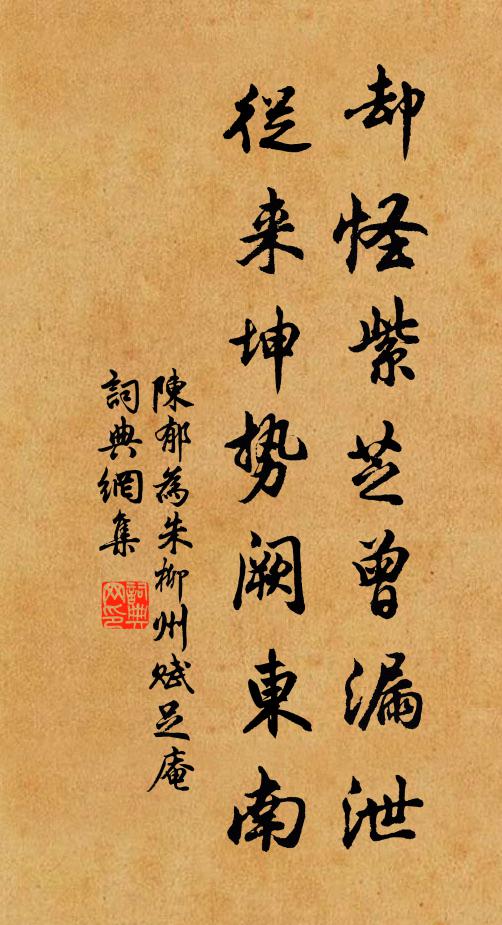 却怪紫芝曾漏泄
従来坤势阙東南
陳郁為朱柳州赋足庵
詞典網集
詞典网印